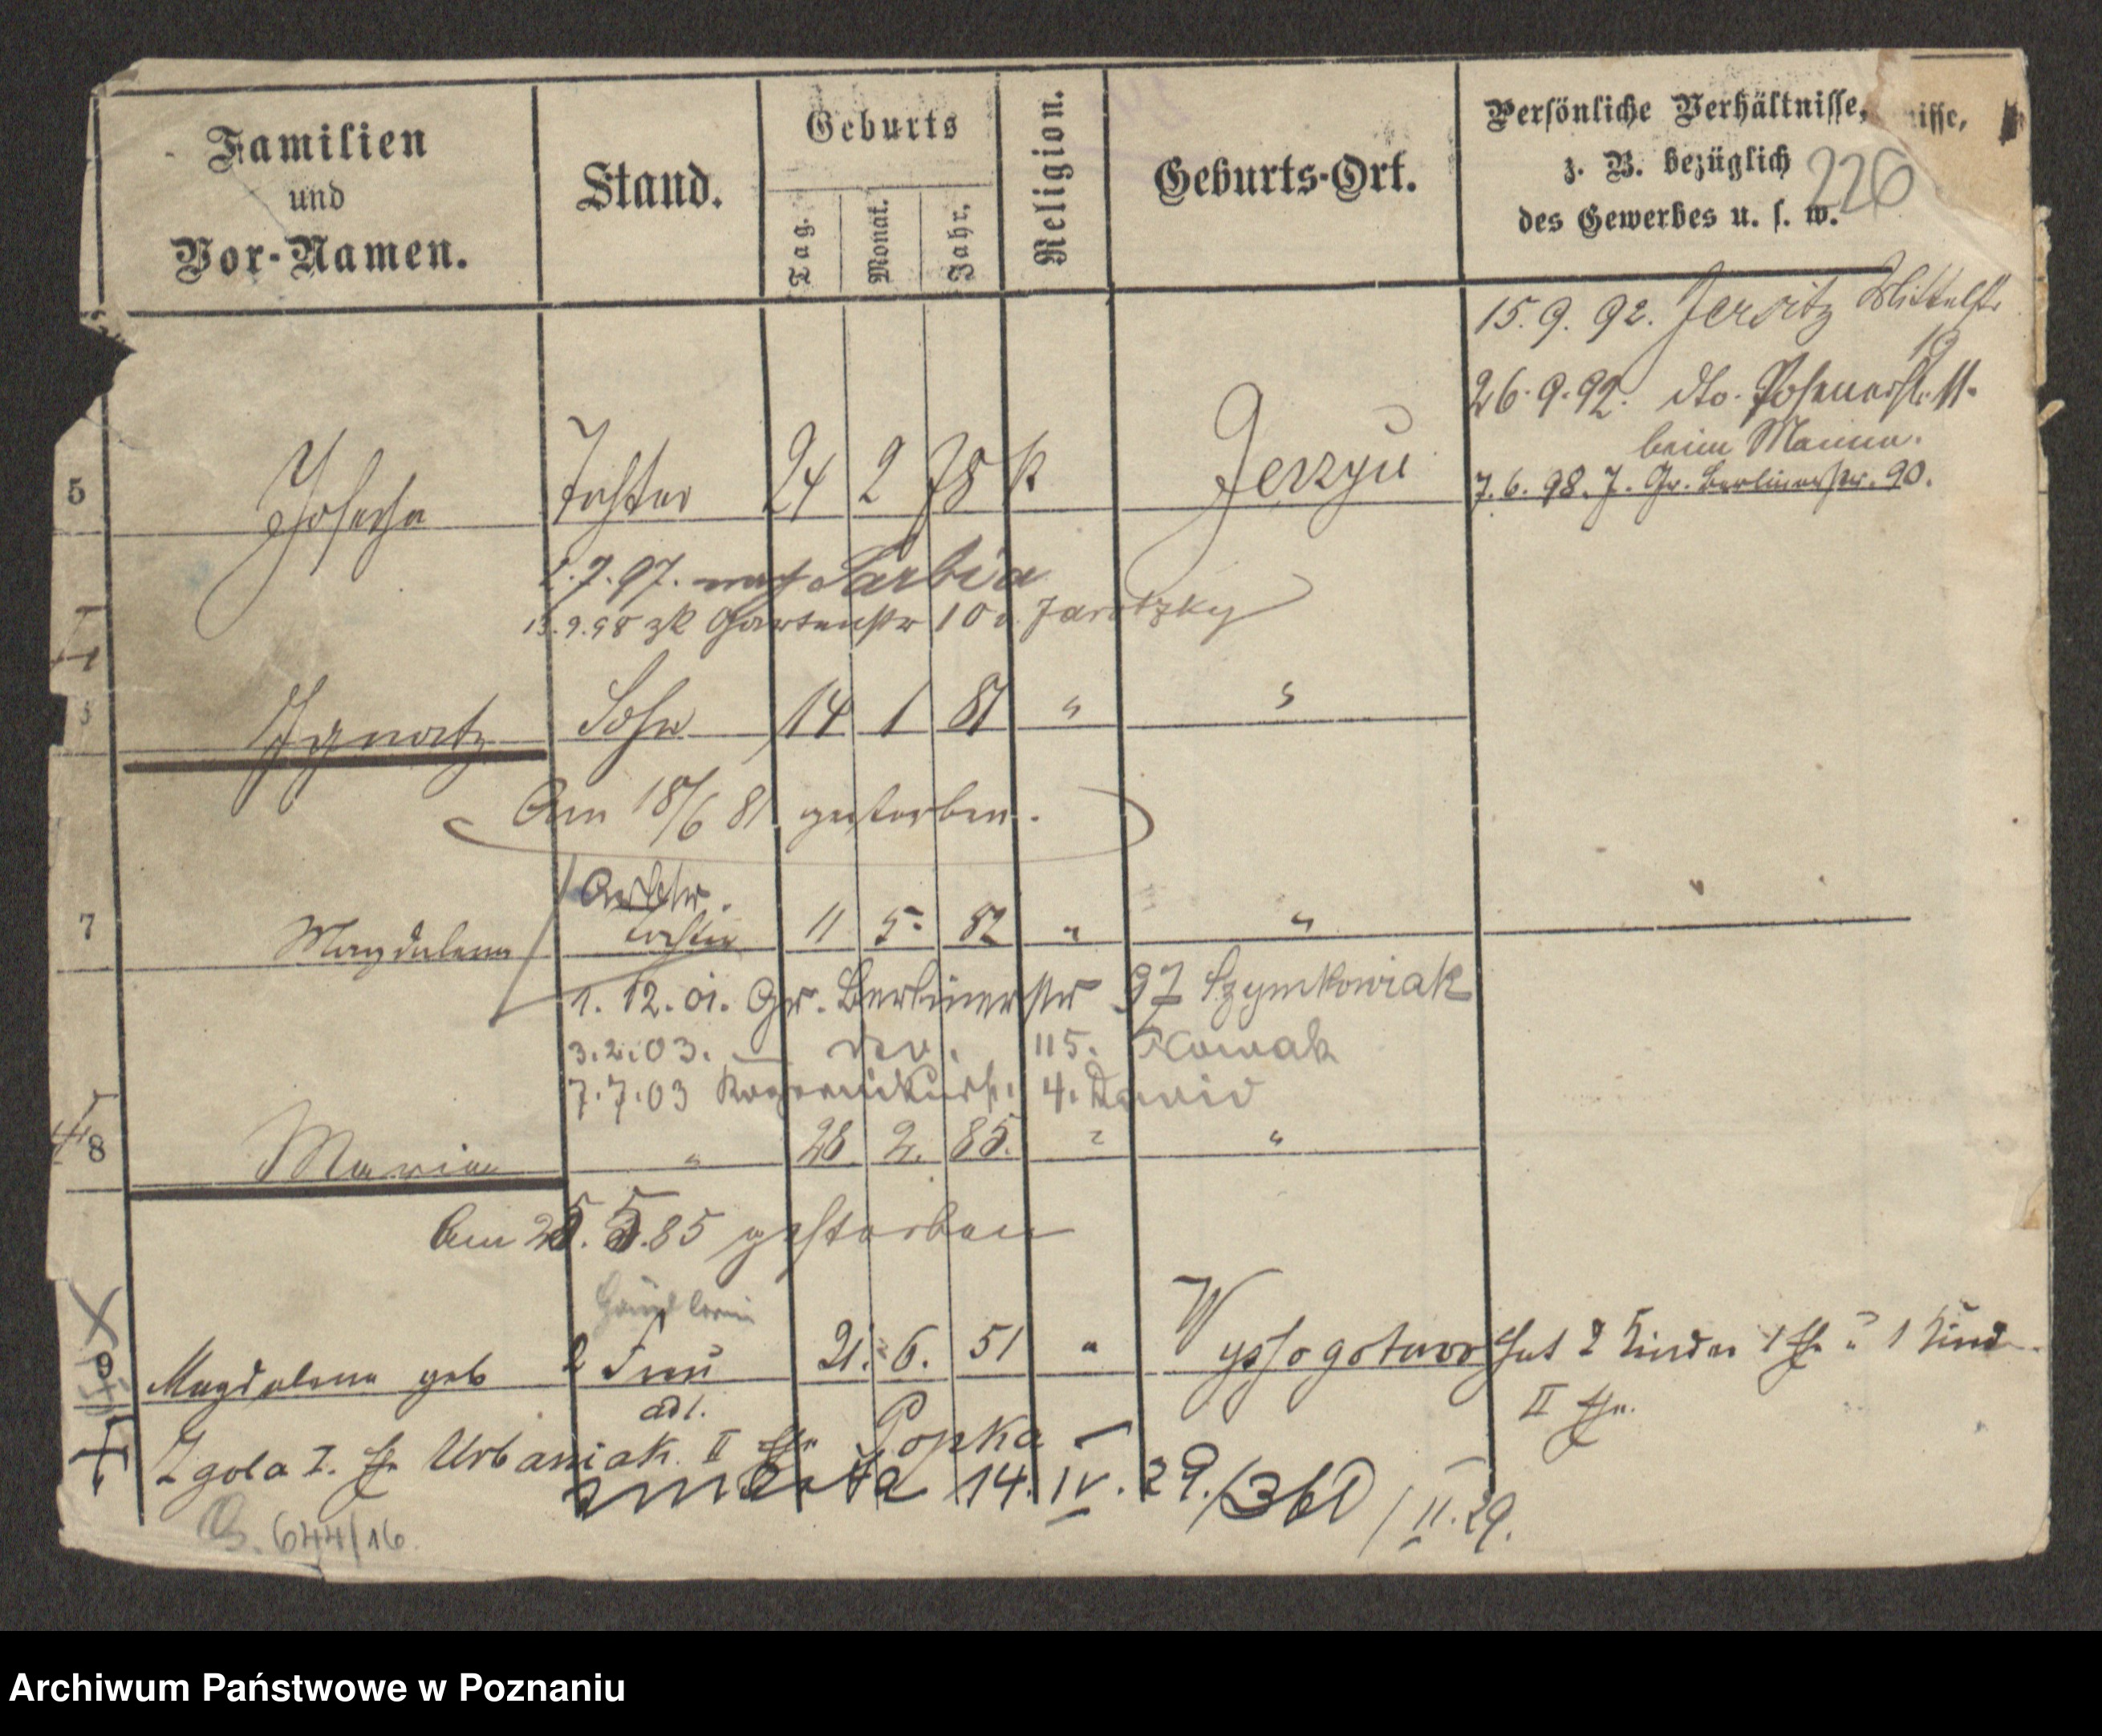 Familien
und
Vor-Namen.
Stand.
Geburts
Tag.
Monat.
Jahr.
Religion.
Geburts-Ort.
Persönliche Verhältnisse,
z. B. bezüglich
des Gewerbes u. s. w.
nisse,
226
15. 9. 92. Jersitz Mittelstr
19
26. 9. 92. dto. Posenerstr. 11.
beim Manne.
7. 6. 98. J. Gr. Berlinerstr. 90.
5 Josefa Tochter 24 2 78 k Jerzyc
2. 7. 97. nach Sarbia
13. 9. 98 zk Gartenstr 10 b. Jarotzky
Ignatz Sohn 14 1 81 " "
Am 18/6 81 gestorben.
7 Magdalena Tochter 11 5. 82 " "
1. 12. 01. Gr. Berlinerstr 97 Szymkowiak
3. 2. 03. — do. 115. Nowak
7. 7. 03 4. David
8 Maria " 28. 2. 85. " "
Am 25. 5. 85 gestorben
Händlerin
9 Magdalena geb 2 Frau 21. 6. 51 " Wyssogotowo hat 2 Kinder I Eh. u 1 Kind
II Eh.
adl.
Zgola I. Eh. Urbaniak. II Eh Popka
zmarła 14. IV. 29. /360 / II. 29.
G. 644/16.
Archiwum Państwowe w Poznaniu